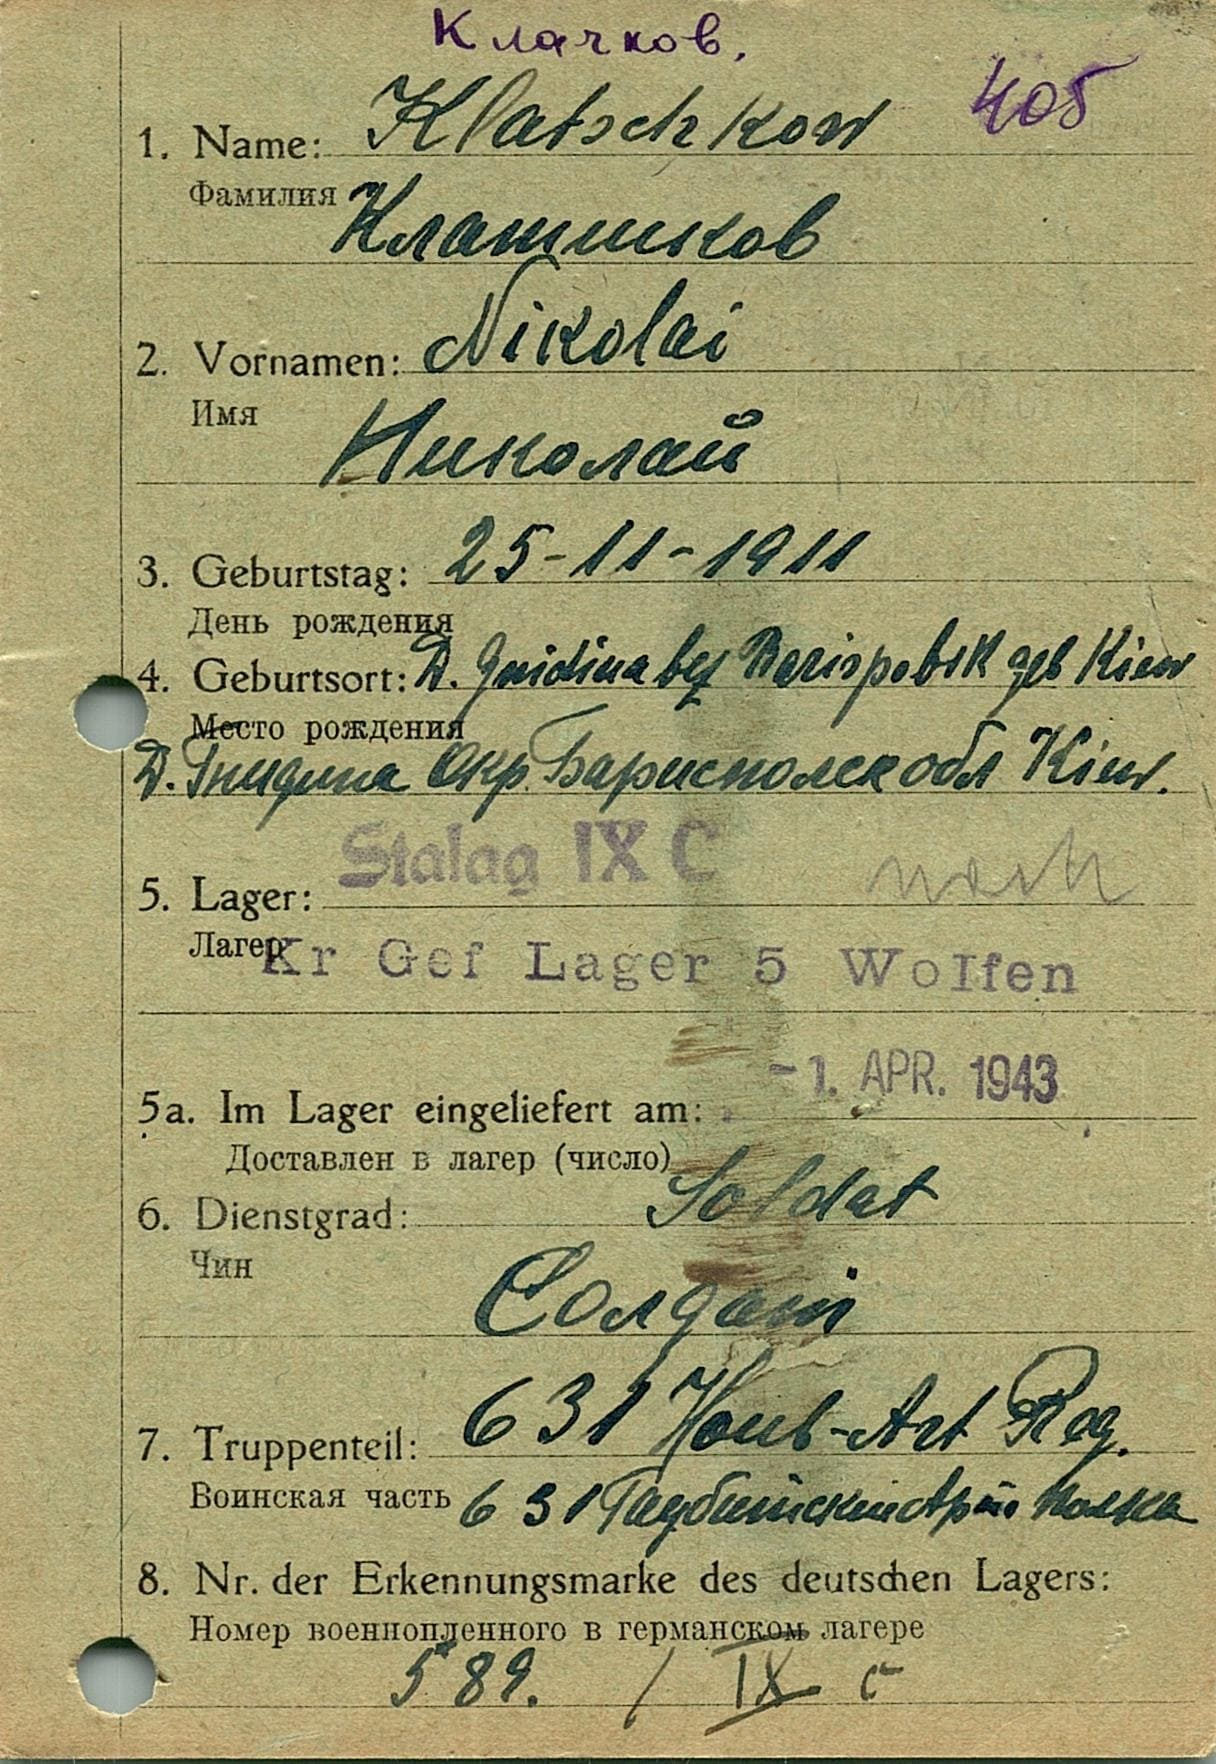 Клачков.
405
1. Name: Klatschkow
Фамилия Клатшков
2. Vornamen: Nikolai
Имя
Николай
3. Geburtstag: 25-11-1911
День рождения
4. Geburtsort: D. Gnidina bez Barispolsk geb Kiew
Место рождения
Д. Гнидина Окр. Барисполск обл Kiew.
Stalag IX C
5. Lager:
Лагер
Kr Gef Lager 5 Wolfen
5a. Im Lager eingeliefert am: -1. APR. 1943
Доставлен в лагер (число)
6. Dienstgrad: Soldat
Чин
Солдат
7. Truppenteil: 631 Haub-Art Reg.
Воинская часть 631 Полка
8. Nr. der Erkennungsmarke des deutschen Lagers:
Номер военнопленного в германском лагере
589. / IX c